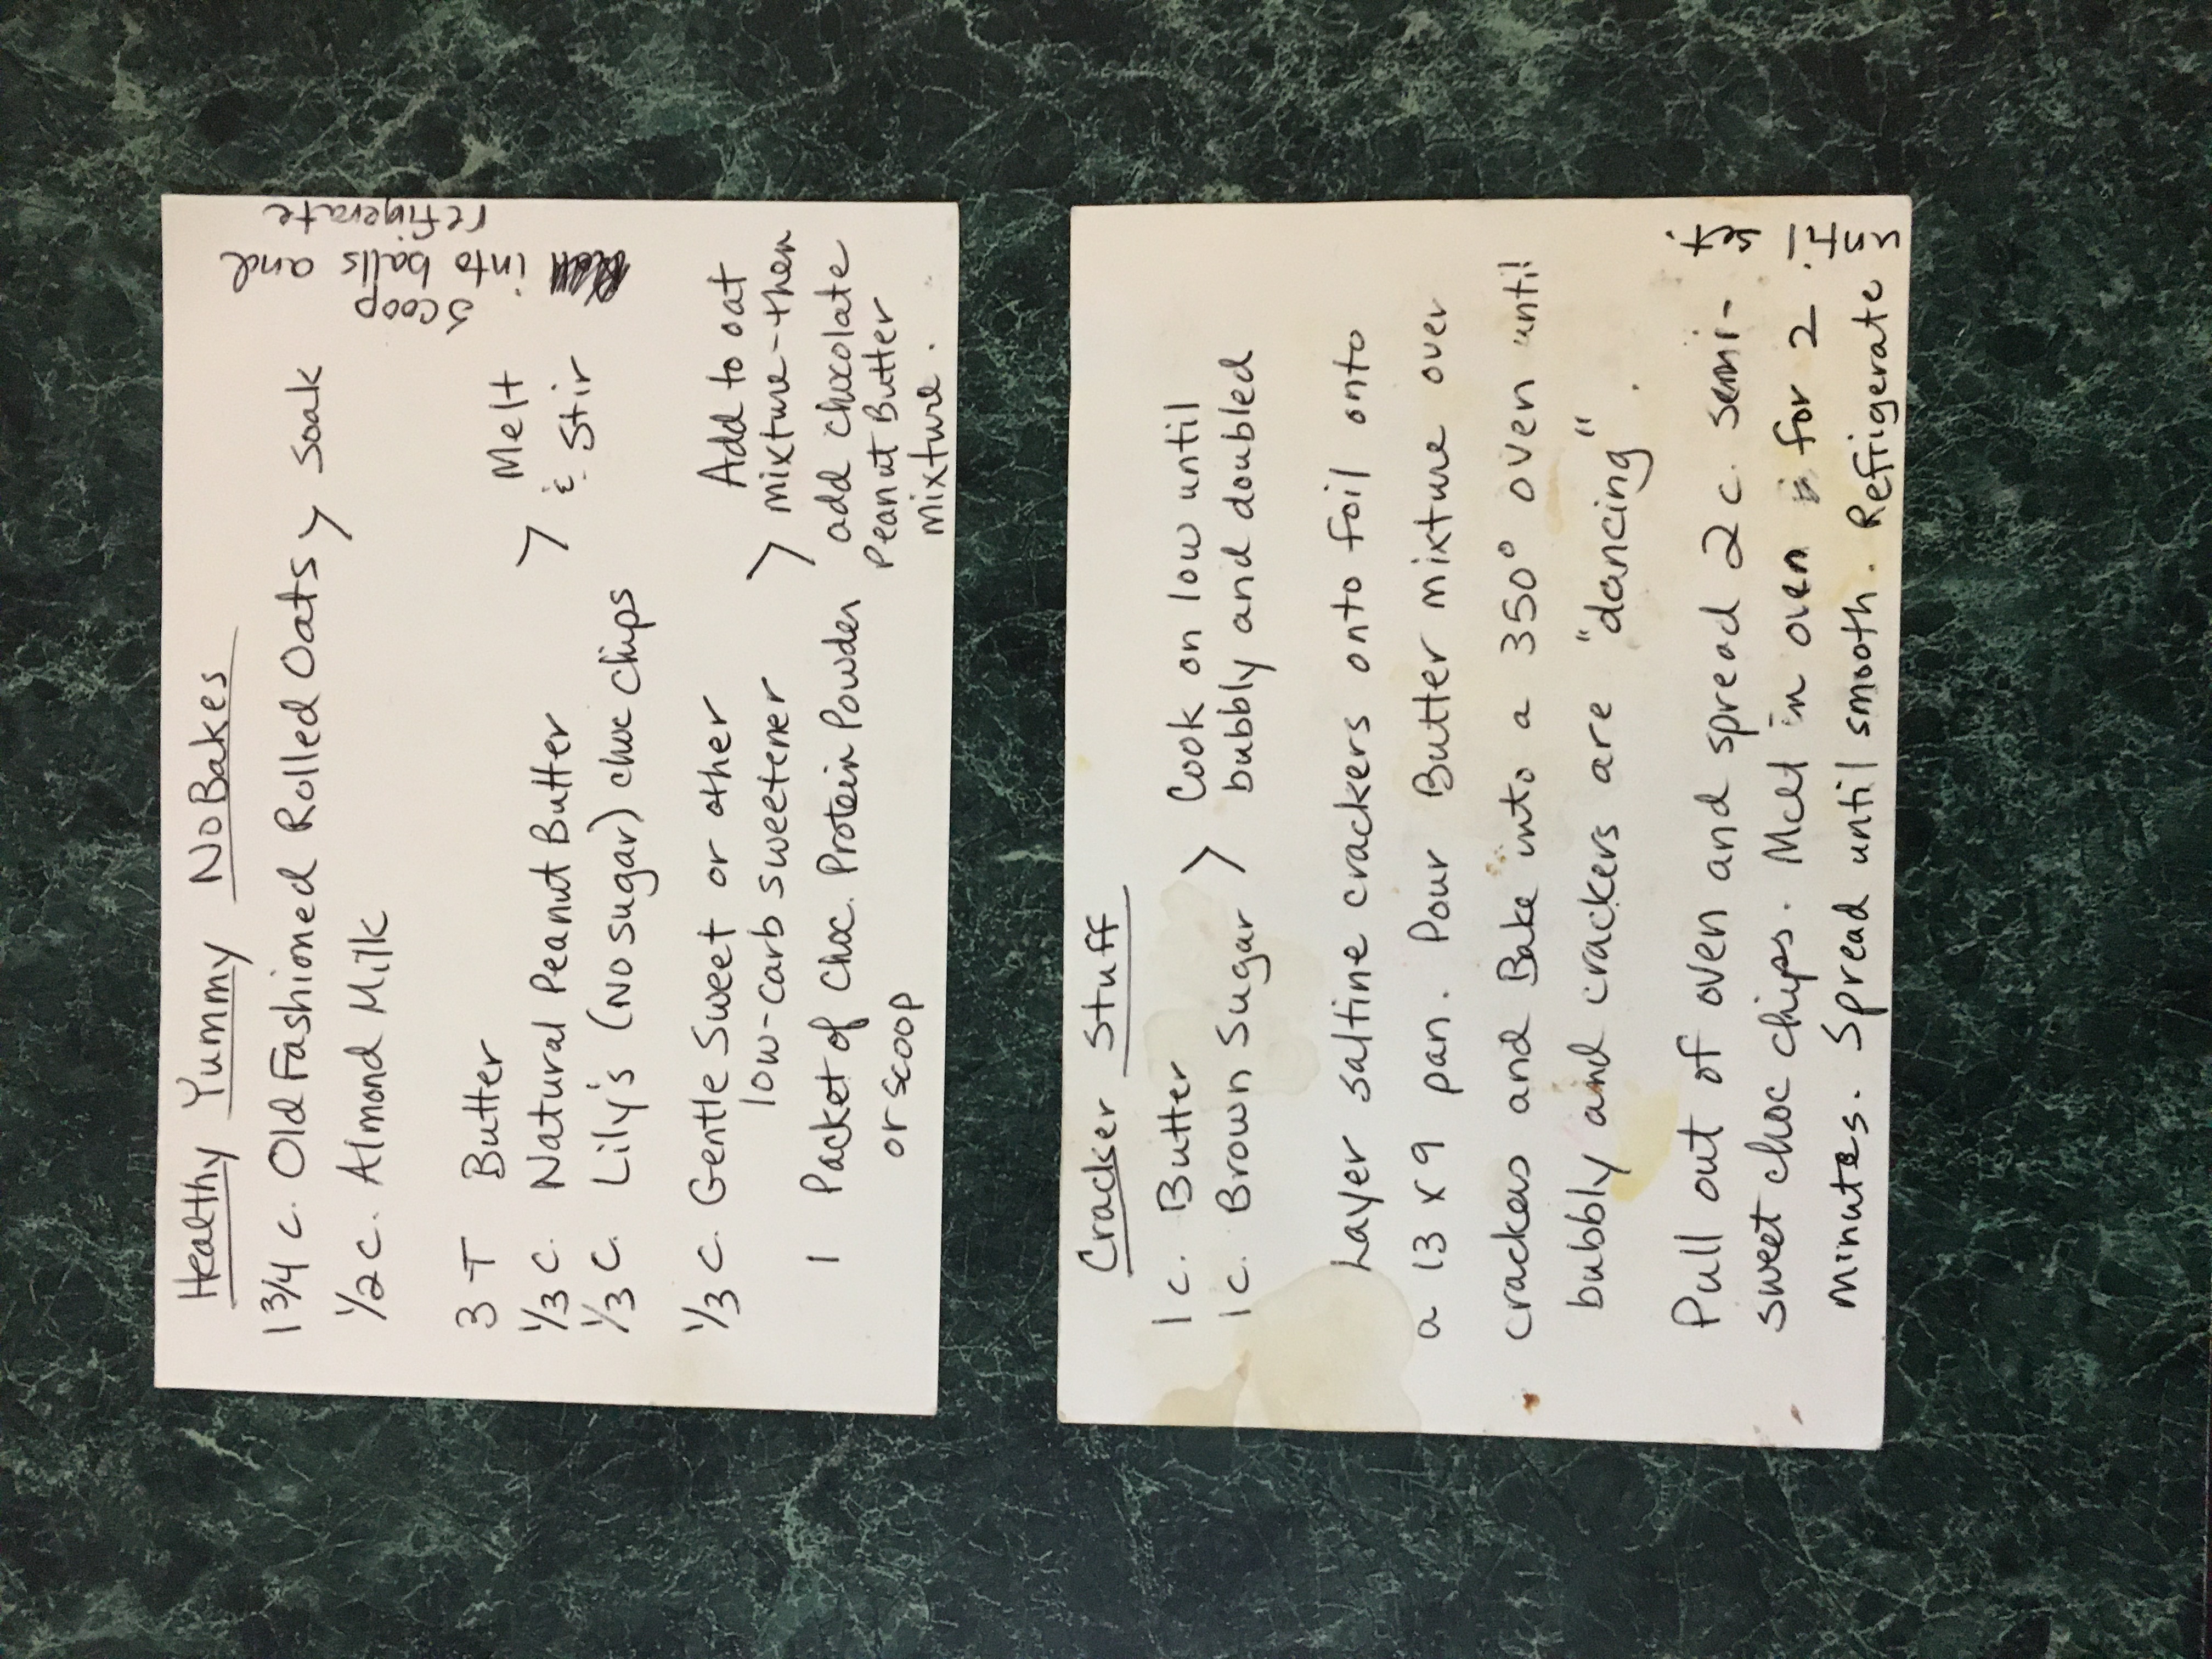 Healthy Yummy NoBakes
1 3/4 c. Old Fashioned Rolled Oats > Soak
1/2 c. Almond Milk
3 T Butter
1/3 c. Natural Peanut Butter
1/3 c. Lily's (No sugar) choc chips
> Melt
& Stir
1/3 c. Gentle Sweet or other
low-carb sweetener
1 Packet of Choc. Protein Powder
or scoop
> Add to oat
mixture - then
add chocolate
Peanut Butter
mixture.
Scoop
into balls and
refigerate
Cracker Stuff
1 c. Butter
1 c. Brown Sugar
> Cook on low until
bubbly and doubled
Layer saltine crackers onto foil onto
a 13 x 9 pan. Pour Butter mixture over
crackers and Bake into a 350° oven until
bubbly and crackers are "dancing".
Pull out of oven and spread 2 c. semi-
sweet choc chips. Melt in oven for 2
minutes. Spread until smooth. Refrigerate
until set.